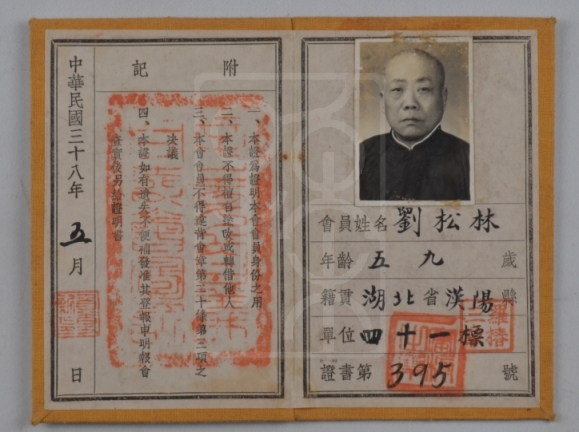 會員姓名 劉松林
年齡 五九 歲
籍貫 湖北省漢陽縣
單位 四十一標
證書第 395 號
附記
一、本證為證明本會會員身份之用
二、本證不得擅自塗改或轉借他人
三、本會會員不得違背會章第二十條第三項之
決議
四、本證如有遺失不便補發准其登報申明報會
查實後另給證明書
中華民國三十八年 五月 日